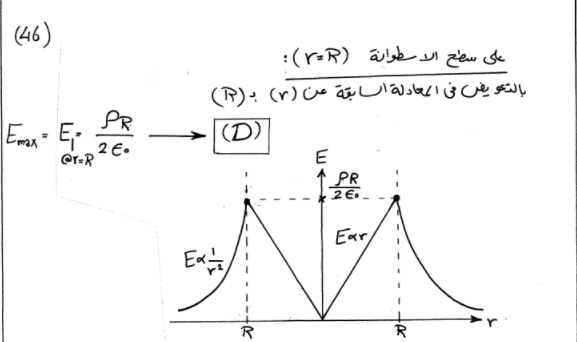 (46)
على سطح الاسطوانة (r=R):
بالتعويض في المعادلة السابقة عن (r) بـ (R)
E_max = E|_@r=R = ρR / 2ϵ₀ → (D)
E
ρR / 2ϵ₀
E∝1/r²
E∝r
R
R
r